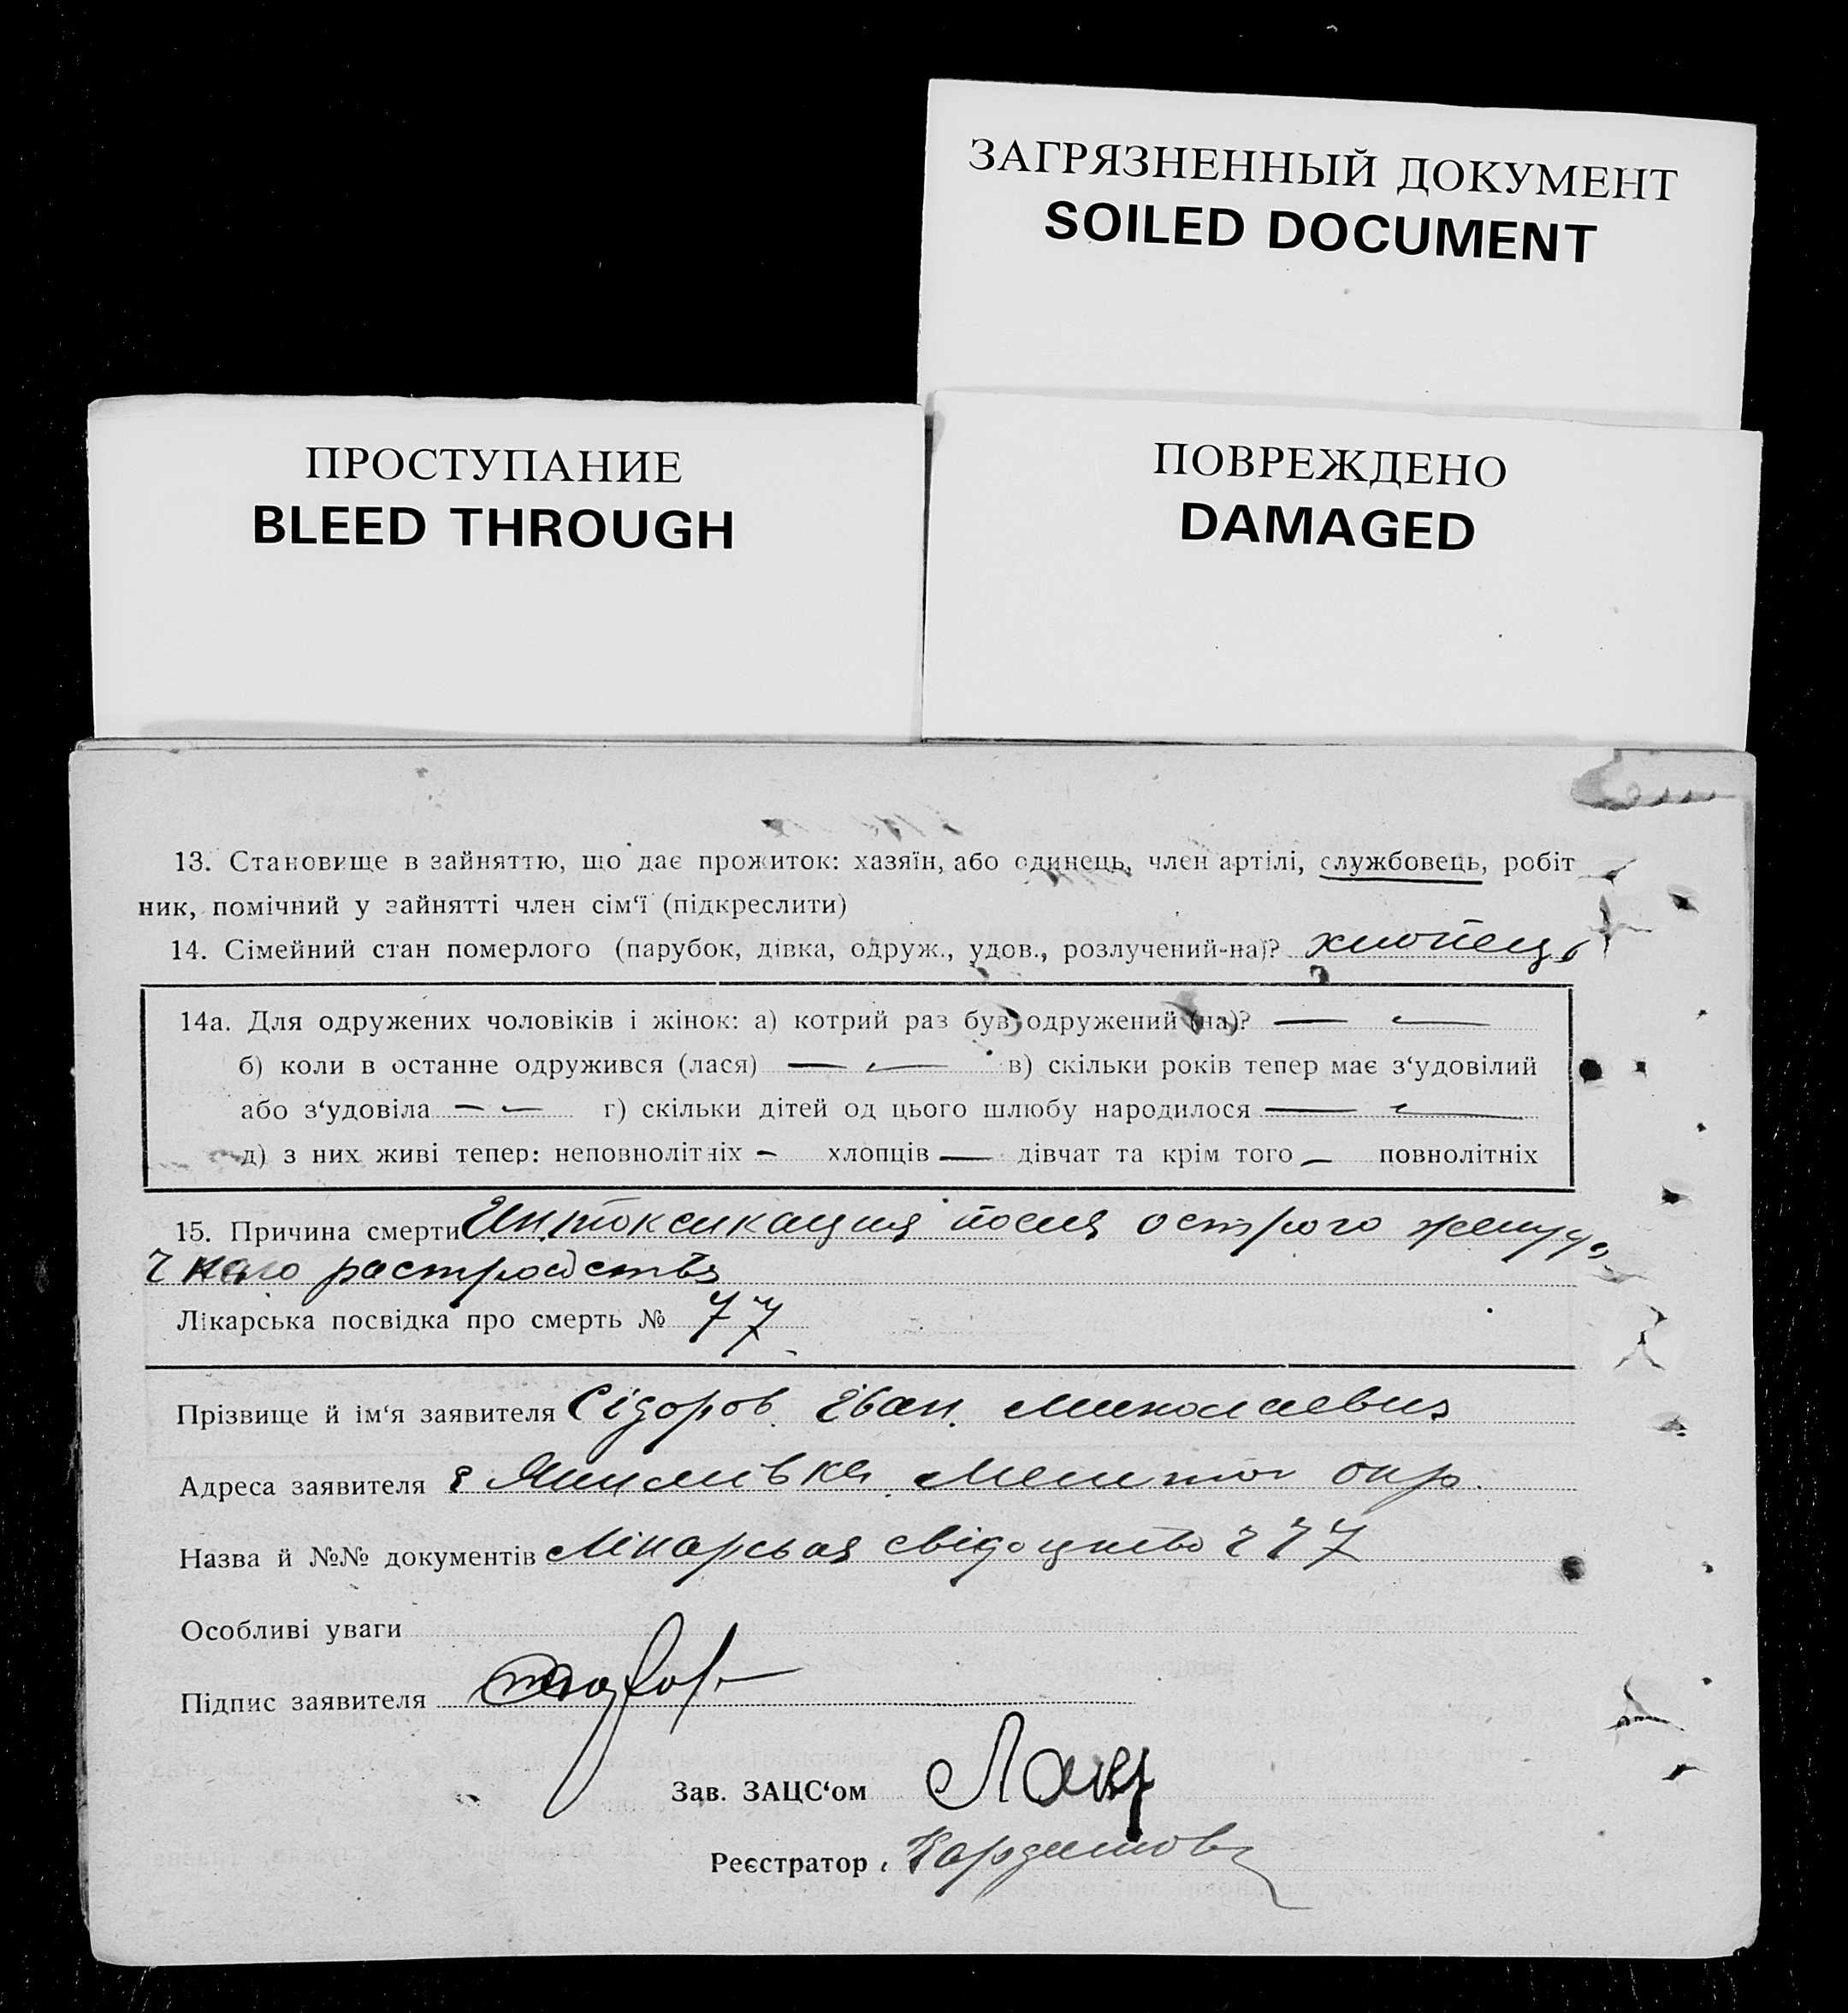 ЗАГРЯЗНЕННЫЙ ДОКУМЕНТ
SOILED DOCUMENT
ПРОСТУПАНИЕ
BLEED THROUGH
ПОВРЕЖДЕНО
DAMAGED
13. Становище в зайняттю, що дає прожиток: хазяїн, або одинець, член артілі, службовець, робіт
ник, помічний у зайнятті член сім‘ї (підкреслити)
14. Сімейний стан померлого (парубок, дівка, одруж., удов., розлучений-на)? хлопець
14а. Для одружених чоловіків і жінок: а) котрий раз був одружений (на)? — —
б) коли в останне одружився (лася) — — в) скільки років тепер має з‘удовілий
або з‘удовіла — — г) скільки дітей од цього шлюбу народилося — —
д) з них живі тепер: неповнолітніх — хлопців — дівчат та крім того — повнолітніх
15. Причина смерти Интоксикация после острого желудо
чного растройства
Лікарська посвідка про смерть № 77
Прізвище й ім‘я заявителя Сідоров Іван Миколаевич
Адреса заявителя Якимівка Мелитоп окр.
Назва й №№ документів Лікарськая свідоцтво 77
Особливі уваги
Підпис заявителя
Зав. ЗАЦС‘ом
Реєстратор